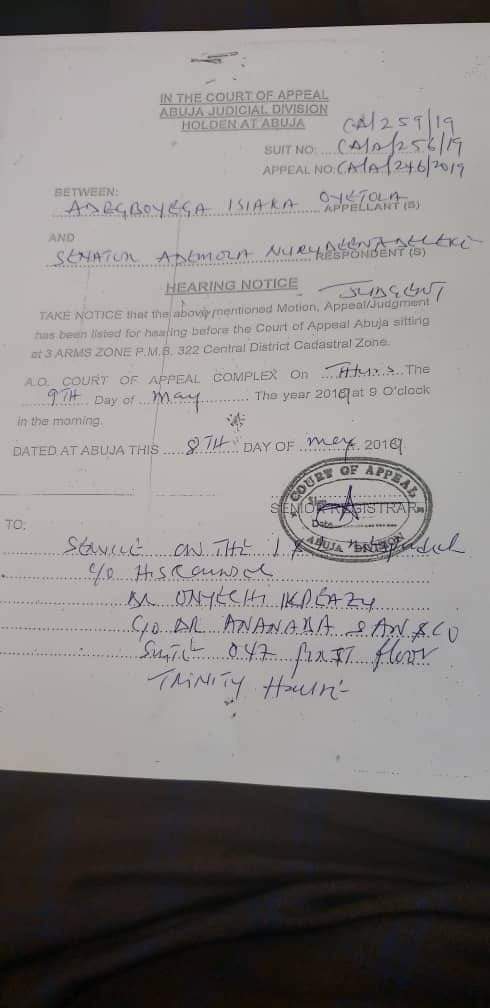 IN THE COURT OF APPEAL
ABUJA JUDICIAL DIVISION
HOLDEN AT ABUJA
CA/259/19
SUIT NO: CA/A/256/19
APPEAL NO: CA/A/246/2019
BETWEEN:
ADEGBOYEGA ISIAKA OYETOLA
APPELLANT (S)
AND
SENATOR ADEMOLA NURUDEEN ADELEKE
RESPONDENT (S)
HEARING NOTICE
TAKE NOTICE that the above mentioned Motion, Appeal/Judgment
has been listed for hearing before the Court of Appeal Abuja sitting
at 3 ARMS ZONE P.M.B. 322 Central District Cadastral Zone.
A.O. COURT OF APPEAL COMPLEX On Thurs The
9TH Day of May The year 2019 at 9 O'clock
in the morning.
DATED AT ABUJA THIS 8TH DAY OF May 2019
COURT OF APPEAL
Sign
SENIOR REGISTRAR
Date
ABUJA DIVISION
TO:
ON THE 1
C/O HIS Counsel
DR ONYECHI IKPEAZU
C/O DR SAN & CO
Suite 047 first floor
TRINITY House